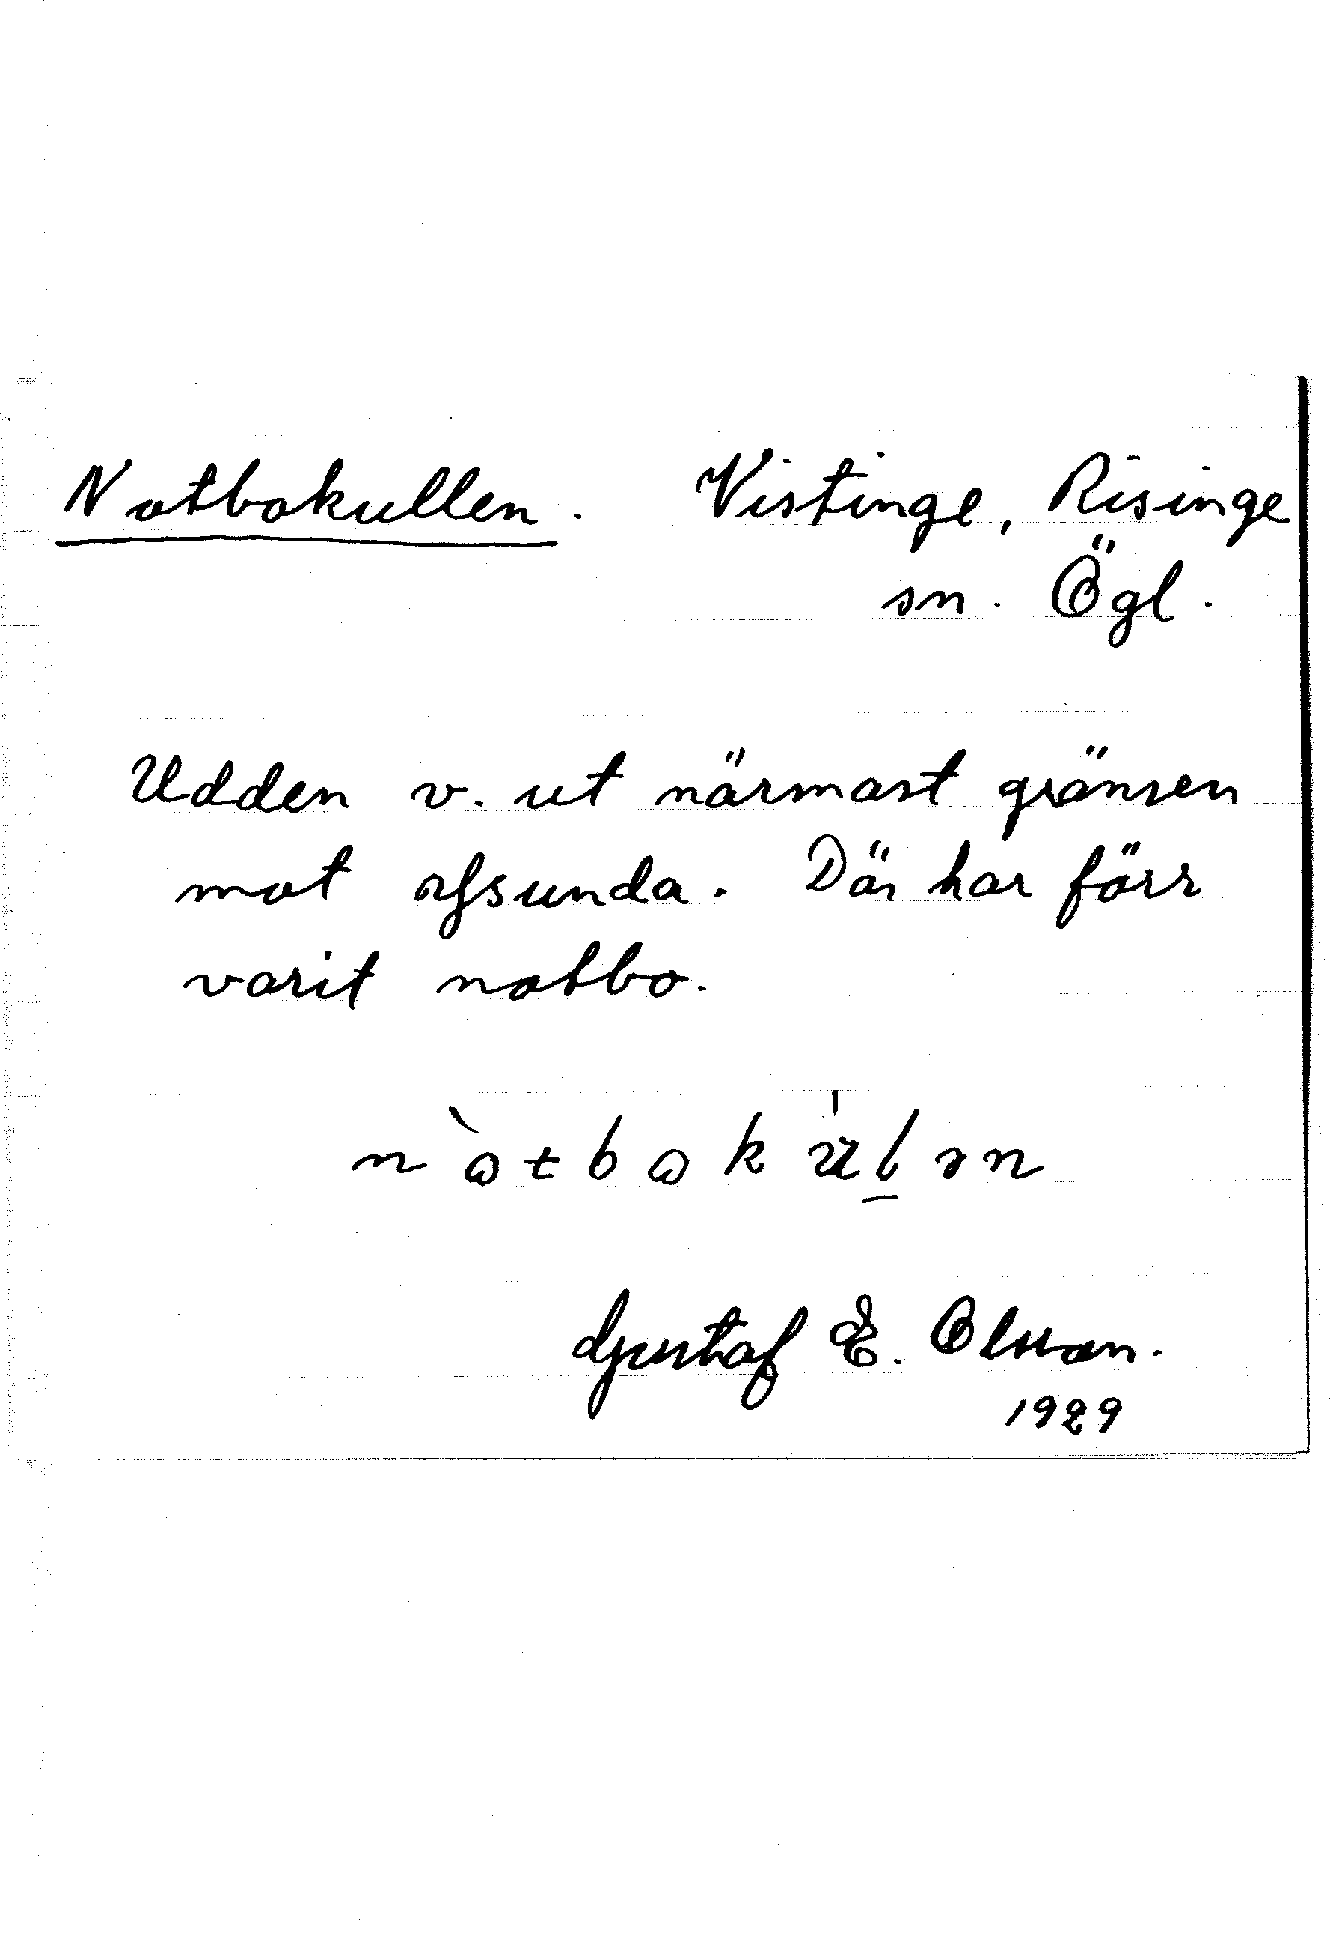 Notbokullen. Vistinge, Risinge
sn. Ögl.
Udden v. ut närmast gränsen
mot Assunda. Där har förr
varit notbo.
Gustaf E. Olsson.
1929